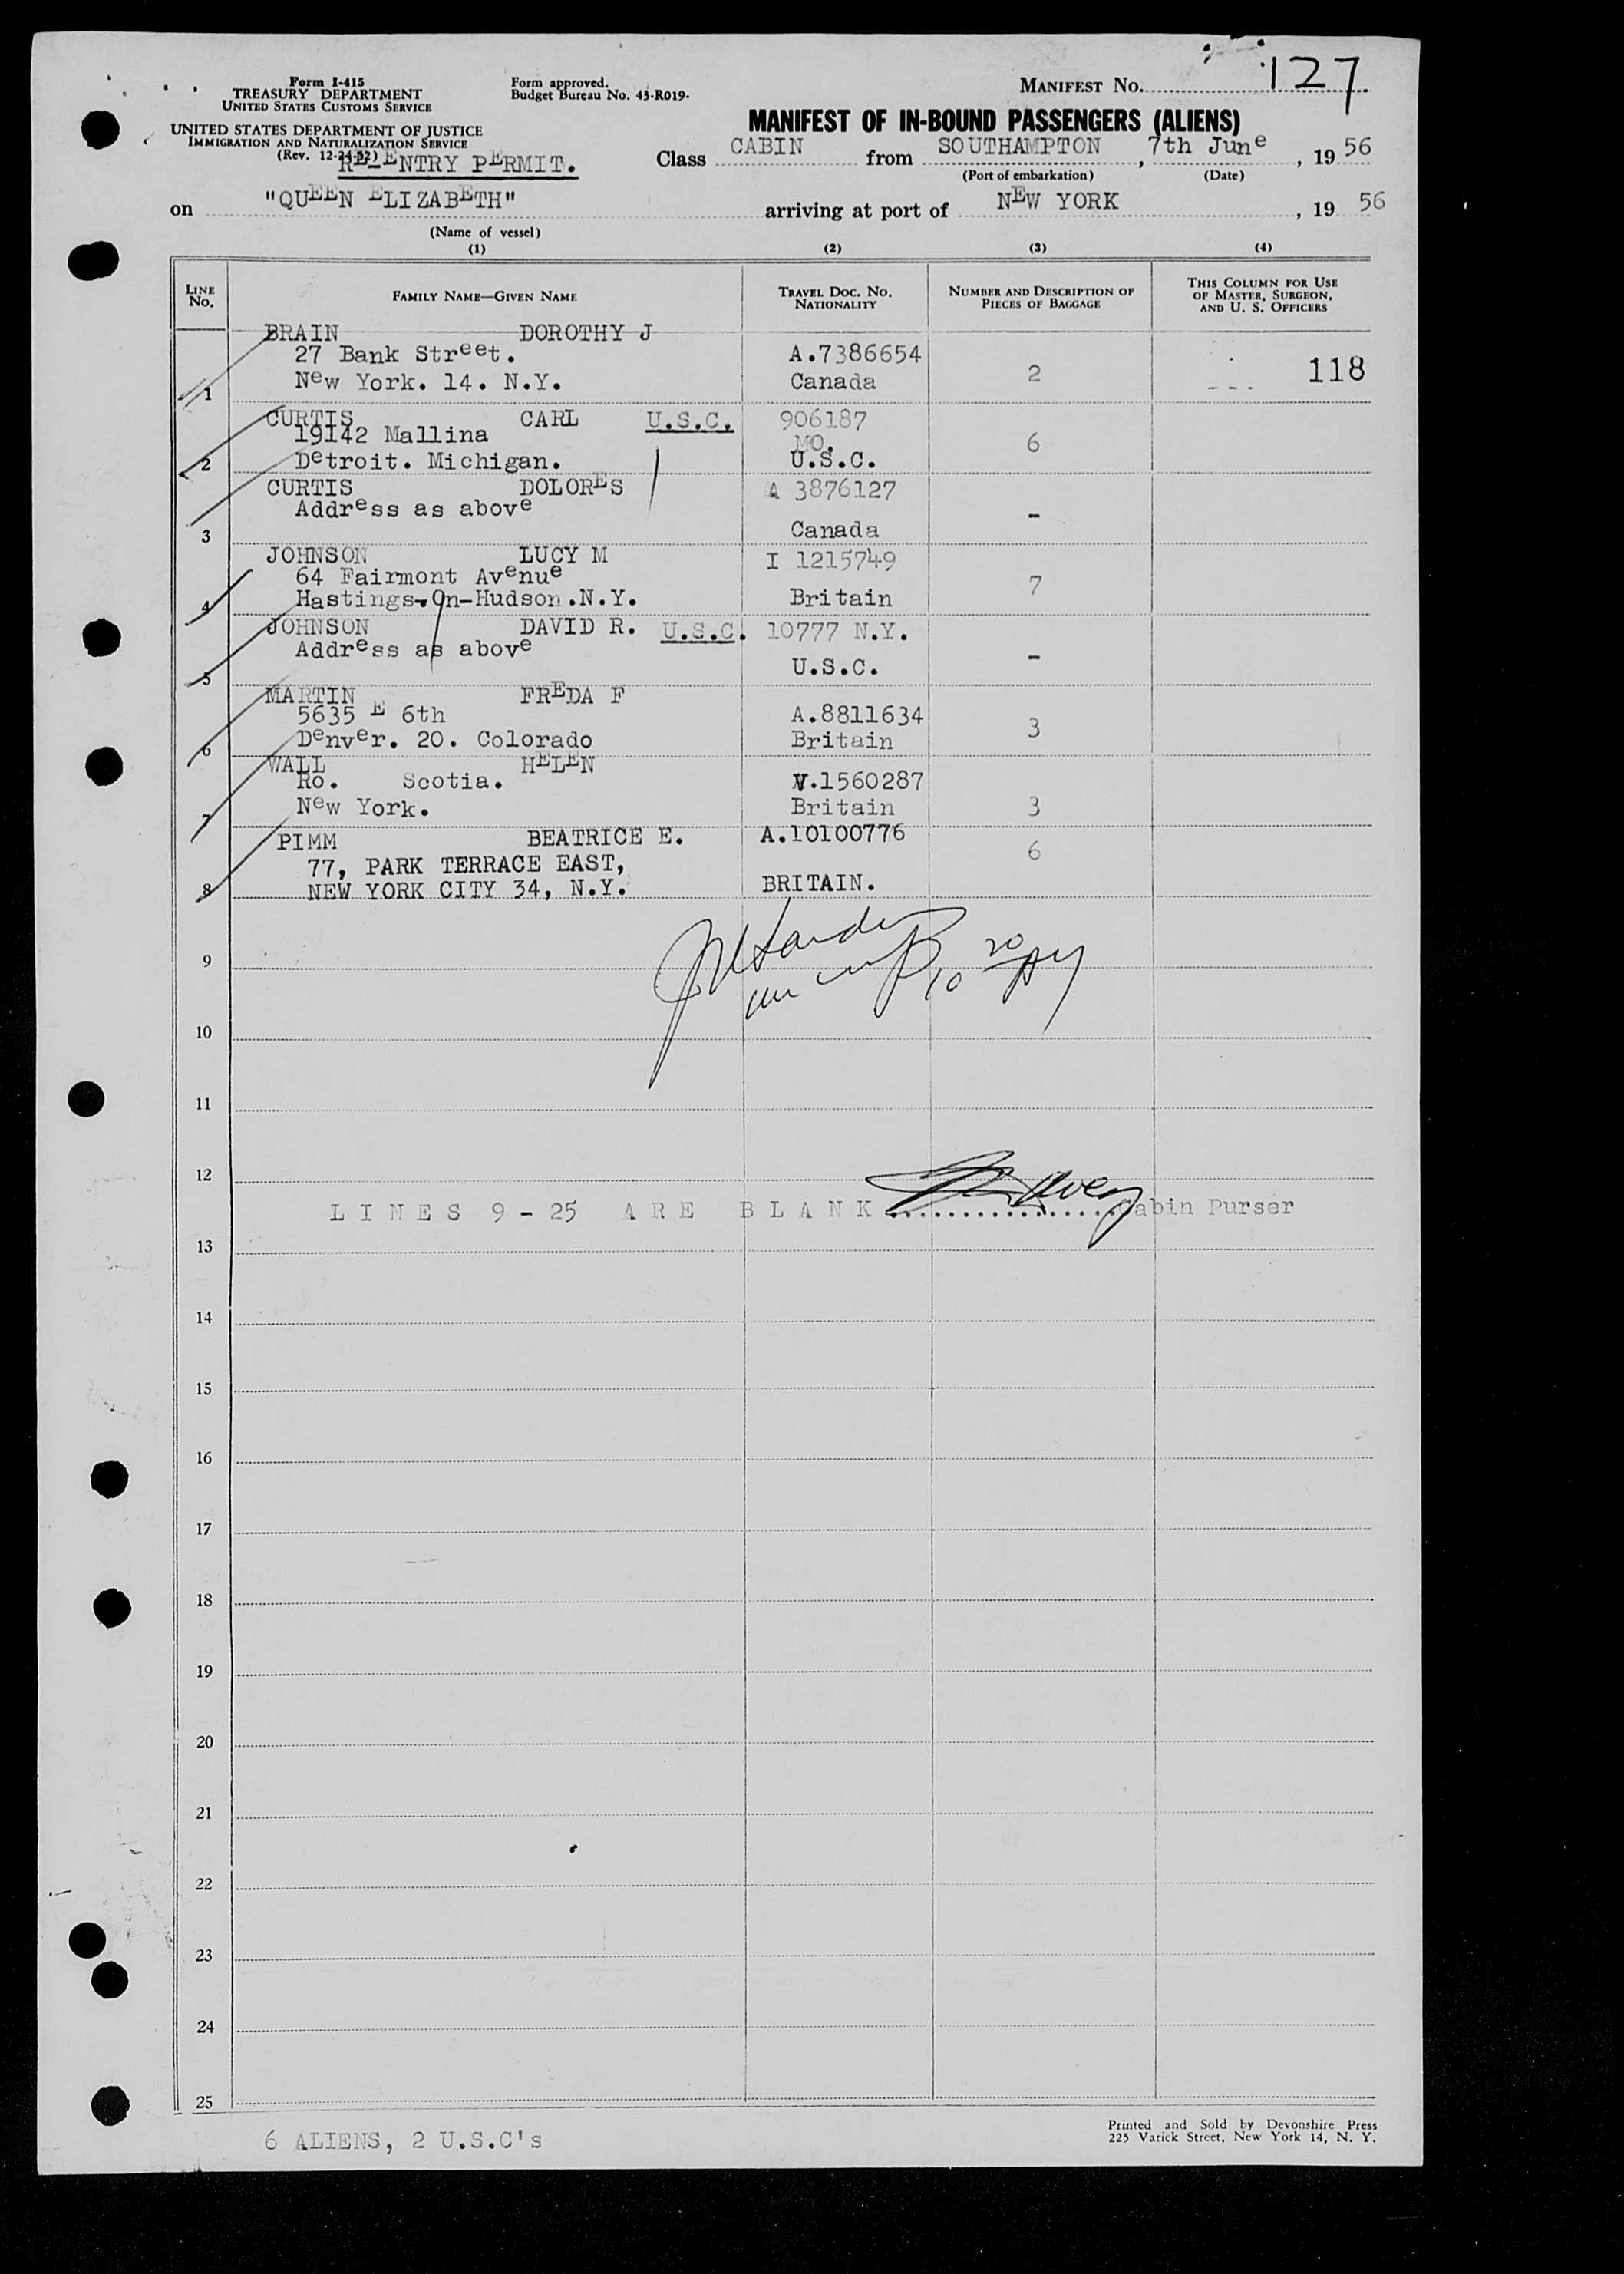 Form I-415
TREASURY DEPARTMENT
UNITED STATES CUSTOMS SERVICE
Form approved.
Budget Bureau No. 43-R019.
MANIFEST NO. 127
UNITED STATES DEPARTMENT OF JUSTICE
IMMIGRATION AND NATURALIZATION SERVICE
(Rev. 12-24-52)
RE-ENTRY PERMIT.
MANIFEST OF IN-BOUND PASSENGERS (ALIENS)
Class CABIN from SOUTHAMPTON, 7th June, 19 56
(Port of embarkation) (Date)
on "QUEEN ELIZABETH" arriving at port of NEW YORK, 19 56
(Name of vessel)
(1) (2) (3) (4)
LINE NO. FAMILY NAME—GIVEN NAME TRAVEL DOC. NO. NATIONALITY NUMBER AND DESCRIPTION OF PIECES OF BAGGAGE THIS COLUMN FOR USE OF MASTER, SURGEON, AND U. S. OFFICERS
BRAIN DOROTHY J
27 Bank Street. A.7386654
1 New York. 14. N.Y. Canada 2 118
CURTIS CARL U.S.C. 906187
19142 Mallina MO. 6
2 Detroit. Michigan. U.S.C.
CURTIS DOLORES A 3876127
Address as above -
3 Canada
JOHNSON LUCY M I 1215749
64 Fairmont Avenue 7
4 Hastings-On-Hudson.N.Y. Britain
JOHNSON DAVID R. U.S.C. 10777 N.Y.
Address as above -
5 U.S.C.
MARTIN FREDA F
5635 E 6th A.8811634 3
6 Denver. 20. Colorado Britain
WALL HELEN
Ro. Scotia. V.1560287
7 New York. Britain 3
PIMM BEATRICE E. A.10100776
77, PARK TERRACE EAST, 6
8 NEW YORK CITY 34, N.Y. BRITAIN.
9
10
11
12
LINES 9 - 25 ARE BLANK ................ Cabin Purser
13
14
15
16
17
18
19
20
21
22
23
24
25
6 ALIENS, 2 U.S.C's
Printed and Sold by Devonshire Press
225 Varick Street, New York 14, N. Y.